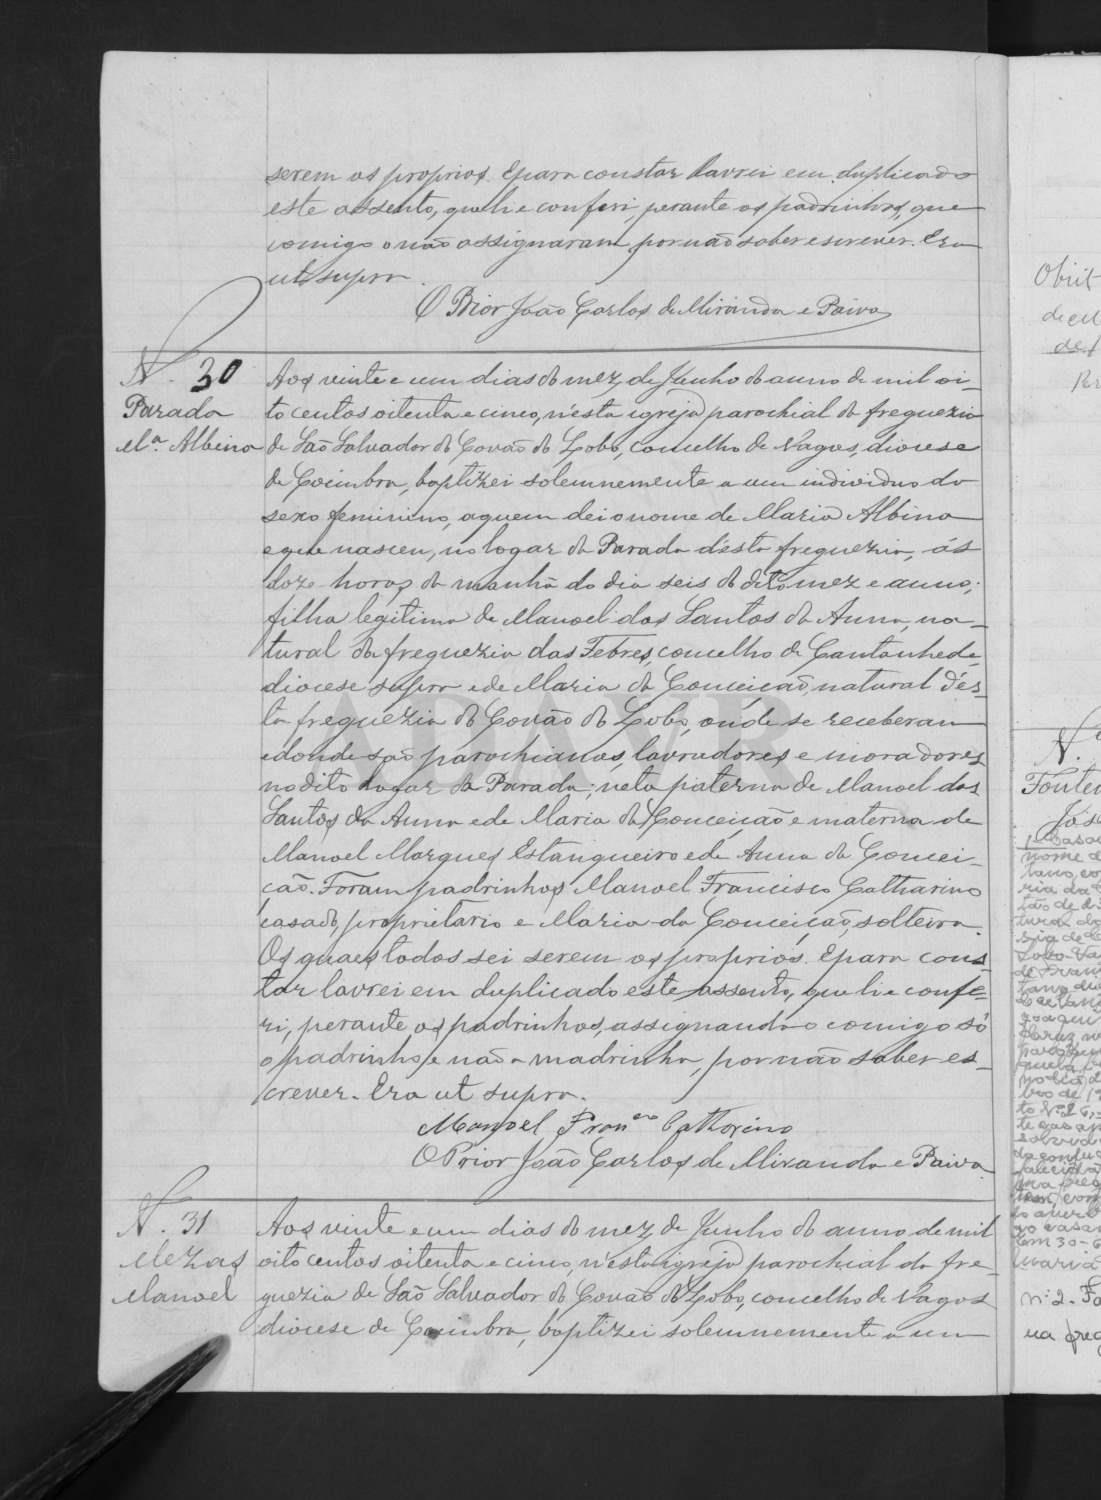 serem os proprios. E para constar lavrei em duplicado
este assento, que li e conferi, perante os padrinhos, que
comigo o não assignaram, por não saber escrever. Era
ut supra.
O Prior João Carlos de Miranda e Paiva
N. 30
Parada
Mª. Albina
Aos vinte e um dias do mez de Junho do anno de mil oi-
to centos oitenta e cinco, n'esta igreja parochial da freguezia
de São Salvador do Covão do Lobo, concelho de Vagos, diocese
de Coimbra, baptizei solemnemente a um individuo do
sexo feminino, a quem dei o nome de Maria Albina
e que nasceu, no logar da Parada d'esta freguezia, ás
doze horas da manhã do dia seis do dito mez e anno;
filha legitima de Manoel dos Santos da Anna, na-
tural da freguezia das Febres, concelho de Cantanhede,
diocese supra e de Maria da Conceição, natural d'es-
ta freguezia do Covão do Lobo, onde se receberam
e donde são parochianos, lavradores e moradores
no dito logar da Parada; neta paterna de Manoel dos
Santos da Anna e de Maria da Conceição e materna de
Manoel Marques Estanqueiro e de Anna da Concei-
ção. Foram padrinhos Manoel Francisco Catharino
casado, proprietario e Maria da Conceição, solteira.
Os quaes todos sei serem os proprios. E para cons-
tar lavrei em duplicado este assento, que li e confe-
ri, perante os padrinhos, assignando-o comigo só
o padrinho, e não a madrinha, por não saber es-
crever. Era ut supra.
Manoel Franco Catharino
O Prior João Carlos de Miranda e Paiva
N. 31
Mezas
Manoel
Aos vinte e um dias do mez de Junho do anno de mil
oito centos oitenta e cinco, n'esta igreja parochial da fre-
guezia de São Salvador do Covão do Lobo, concelho de Vagos
diocese de Coimbra, baptizei solemnemente a um
ADAVR
N.
nº 2.